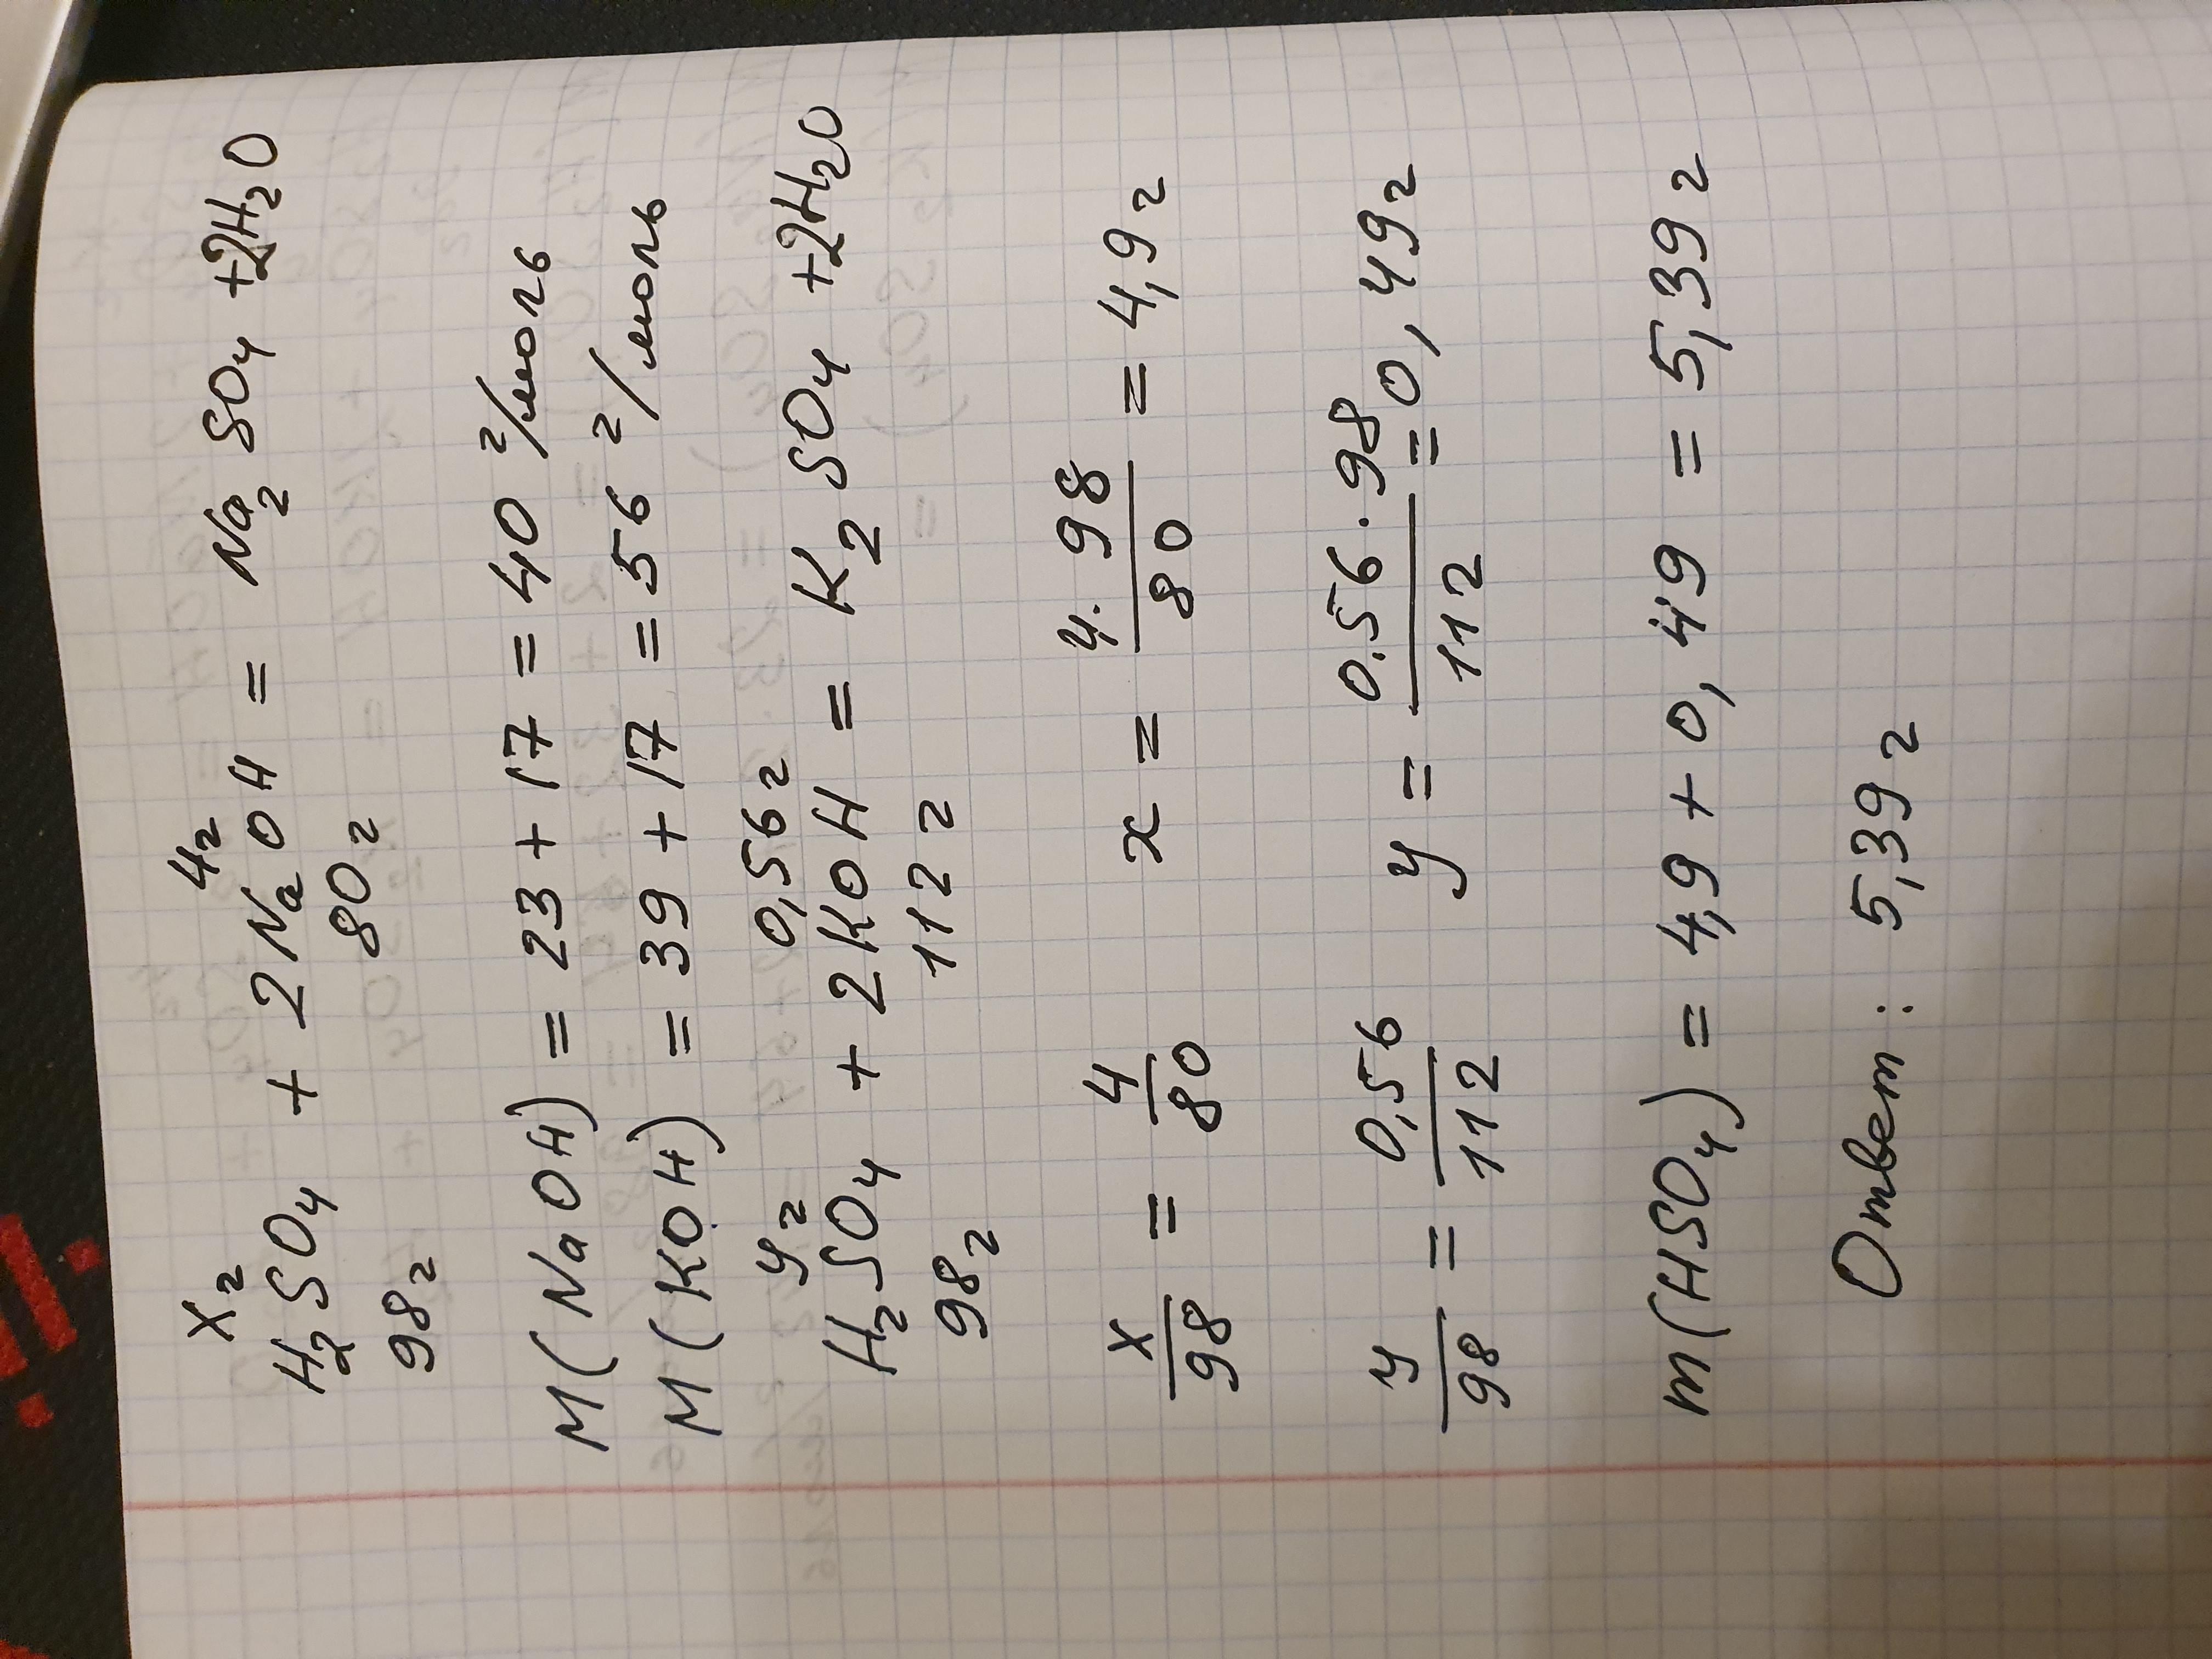 x г 4 г
H₂SO₄ + 2NaOH = Na₂SO₄ + 2H₂O
98 г 80 г
M(NaOH) = 23 + 17 = 40 г/моль
M(KOH) = 39 + 17 = 56 г/моль
y г 0,56 г
H₂SO₄ + 2KOH = K₂SO₄ + 2H₂O
98 г 112 г
x/98 = 4/80 x = 4·98/80 = 4,9 г
y/98 = 0,56/112 y = 0,56·98/112 = 0,49 г
m(HSO₄) = 4,9 + 0,49 = 5,39 г
Ответ: 5,39 г